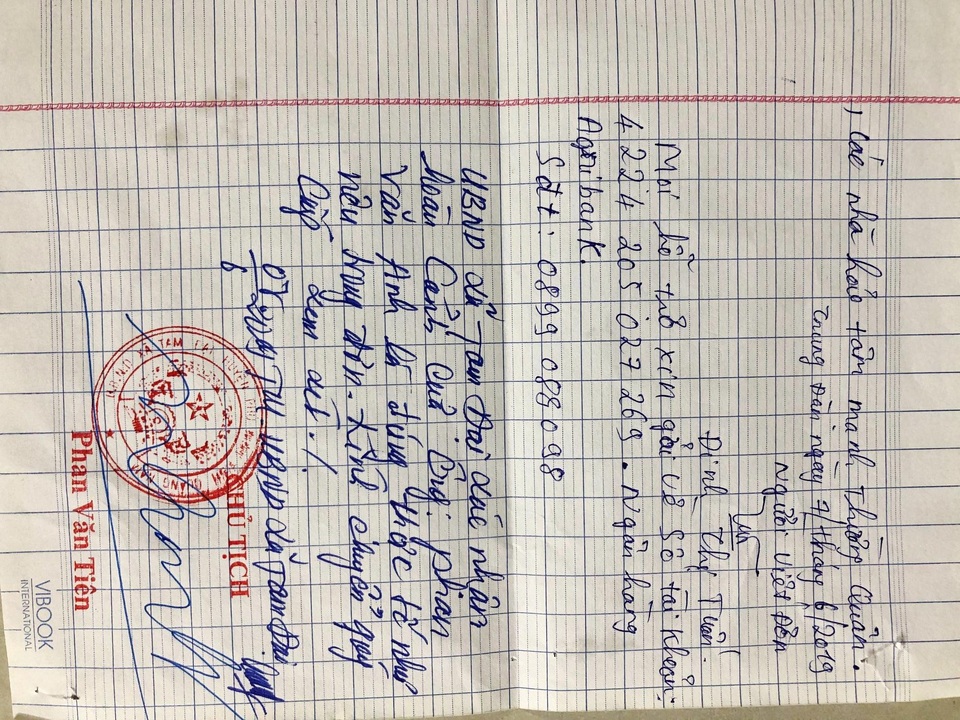 , các nhà hảo tâm mạnh Thường Quân.
Trung Đàn ngày 7/tháng 6/2019
Người viết đơn
Đinh Thị Tuấn.
Mọi hỗ trợ xin gởi về số tài khoản:
4224 205 027 269. Ngân hàng
Agribank.
Sđt: 0899 088098
UBND xã Tam Đại xác nhận
hoàn Cảnh Của Ông: phan
Văn Anh là đúng thực tế như
nêu trong đơn. Kính chuyển quý
Cấp xem xét./.
TM UBND xã Tam Đại
CHỦ TỊCH
Phan Văn Tiên
VIBOOK
INTERNATIONAL